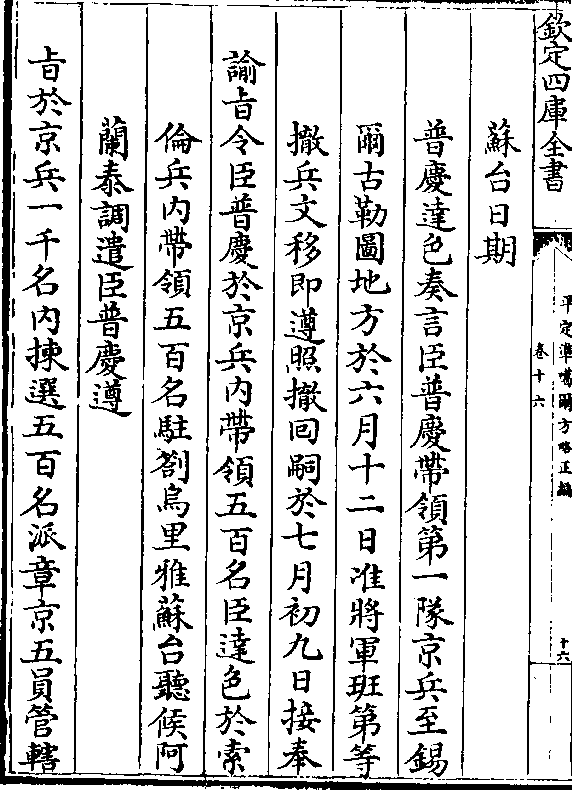 欽定四庫全書
平定準噶爾方略正編
卷十六
十六
蘇台日期
普慶達色奏言臣普慶帶領第一隊京兵至錫
爾古勒圖地方於六月十二日准將軍班第等
撤兵文移即遵照撤回嗣於七月初九日接奉
諭旨令臣普慶於京兵内帶領五百名臣達色於索
倫兵内帶領五百名駐劄烏里雅蘇台聽候阿
蘭泰調遣臣普慶遵
旨於京兵一千名内揀選五百名派章京五員管轄